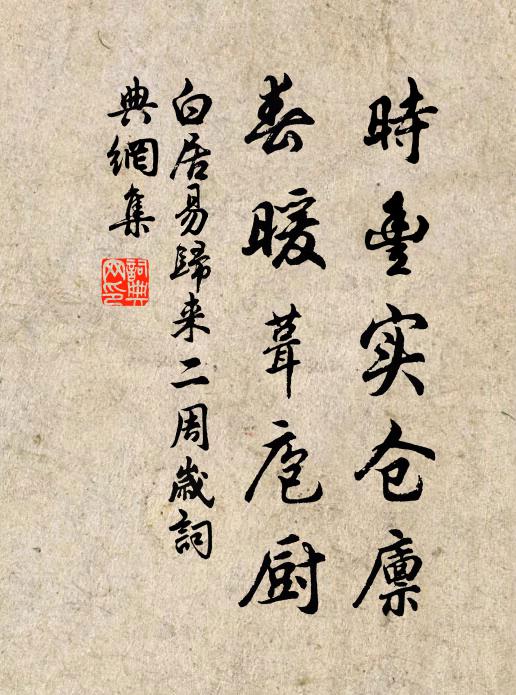 時豊实仓廪
春暖葺庖厨
白居易歸来二周歲詞
典網集
詞典网印